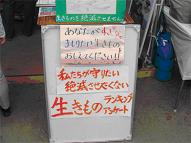 生きものを絶滅させません。
あなたが すきな
まもりたい 生きもの
おしえてください!!
私たちが守りたい
絶滅させたくない
生きもの ランキング
アンケート